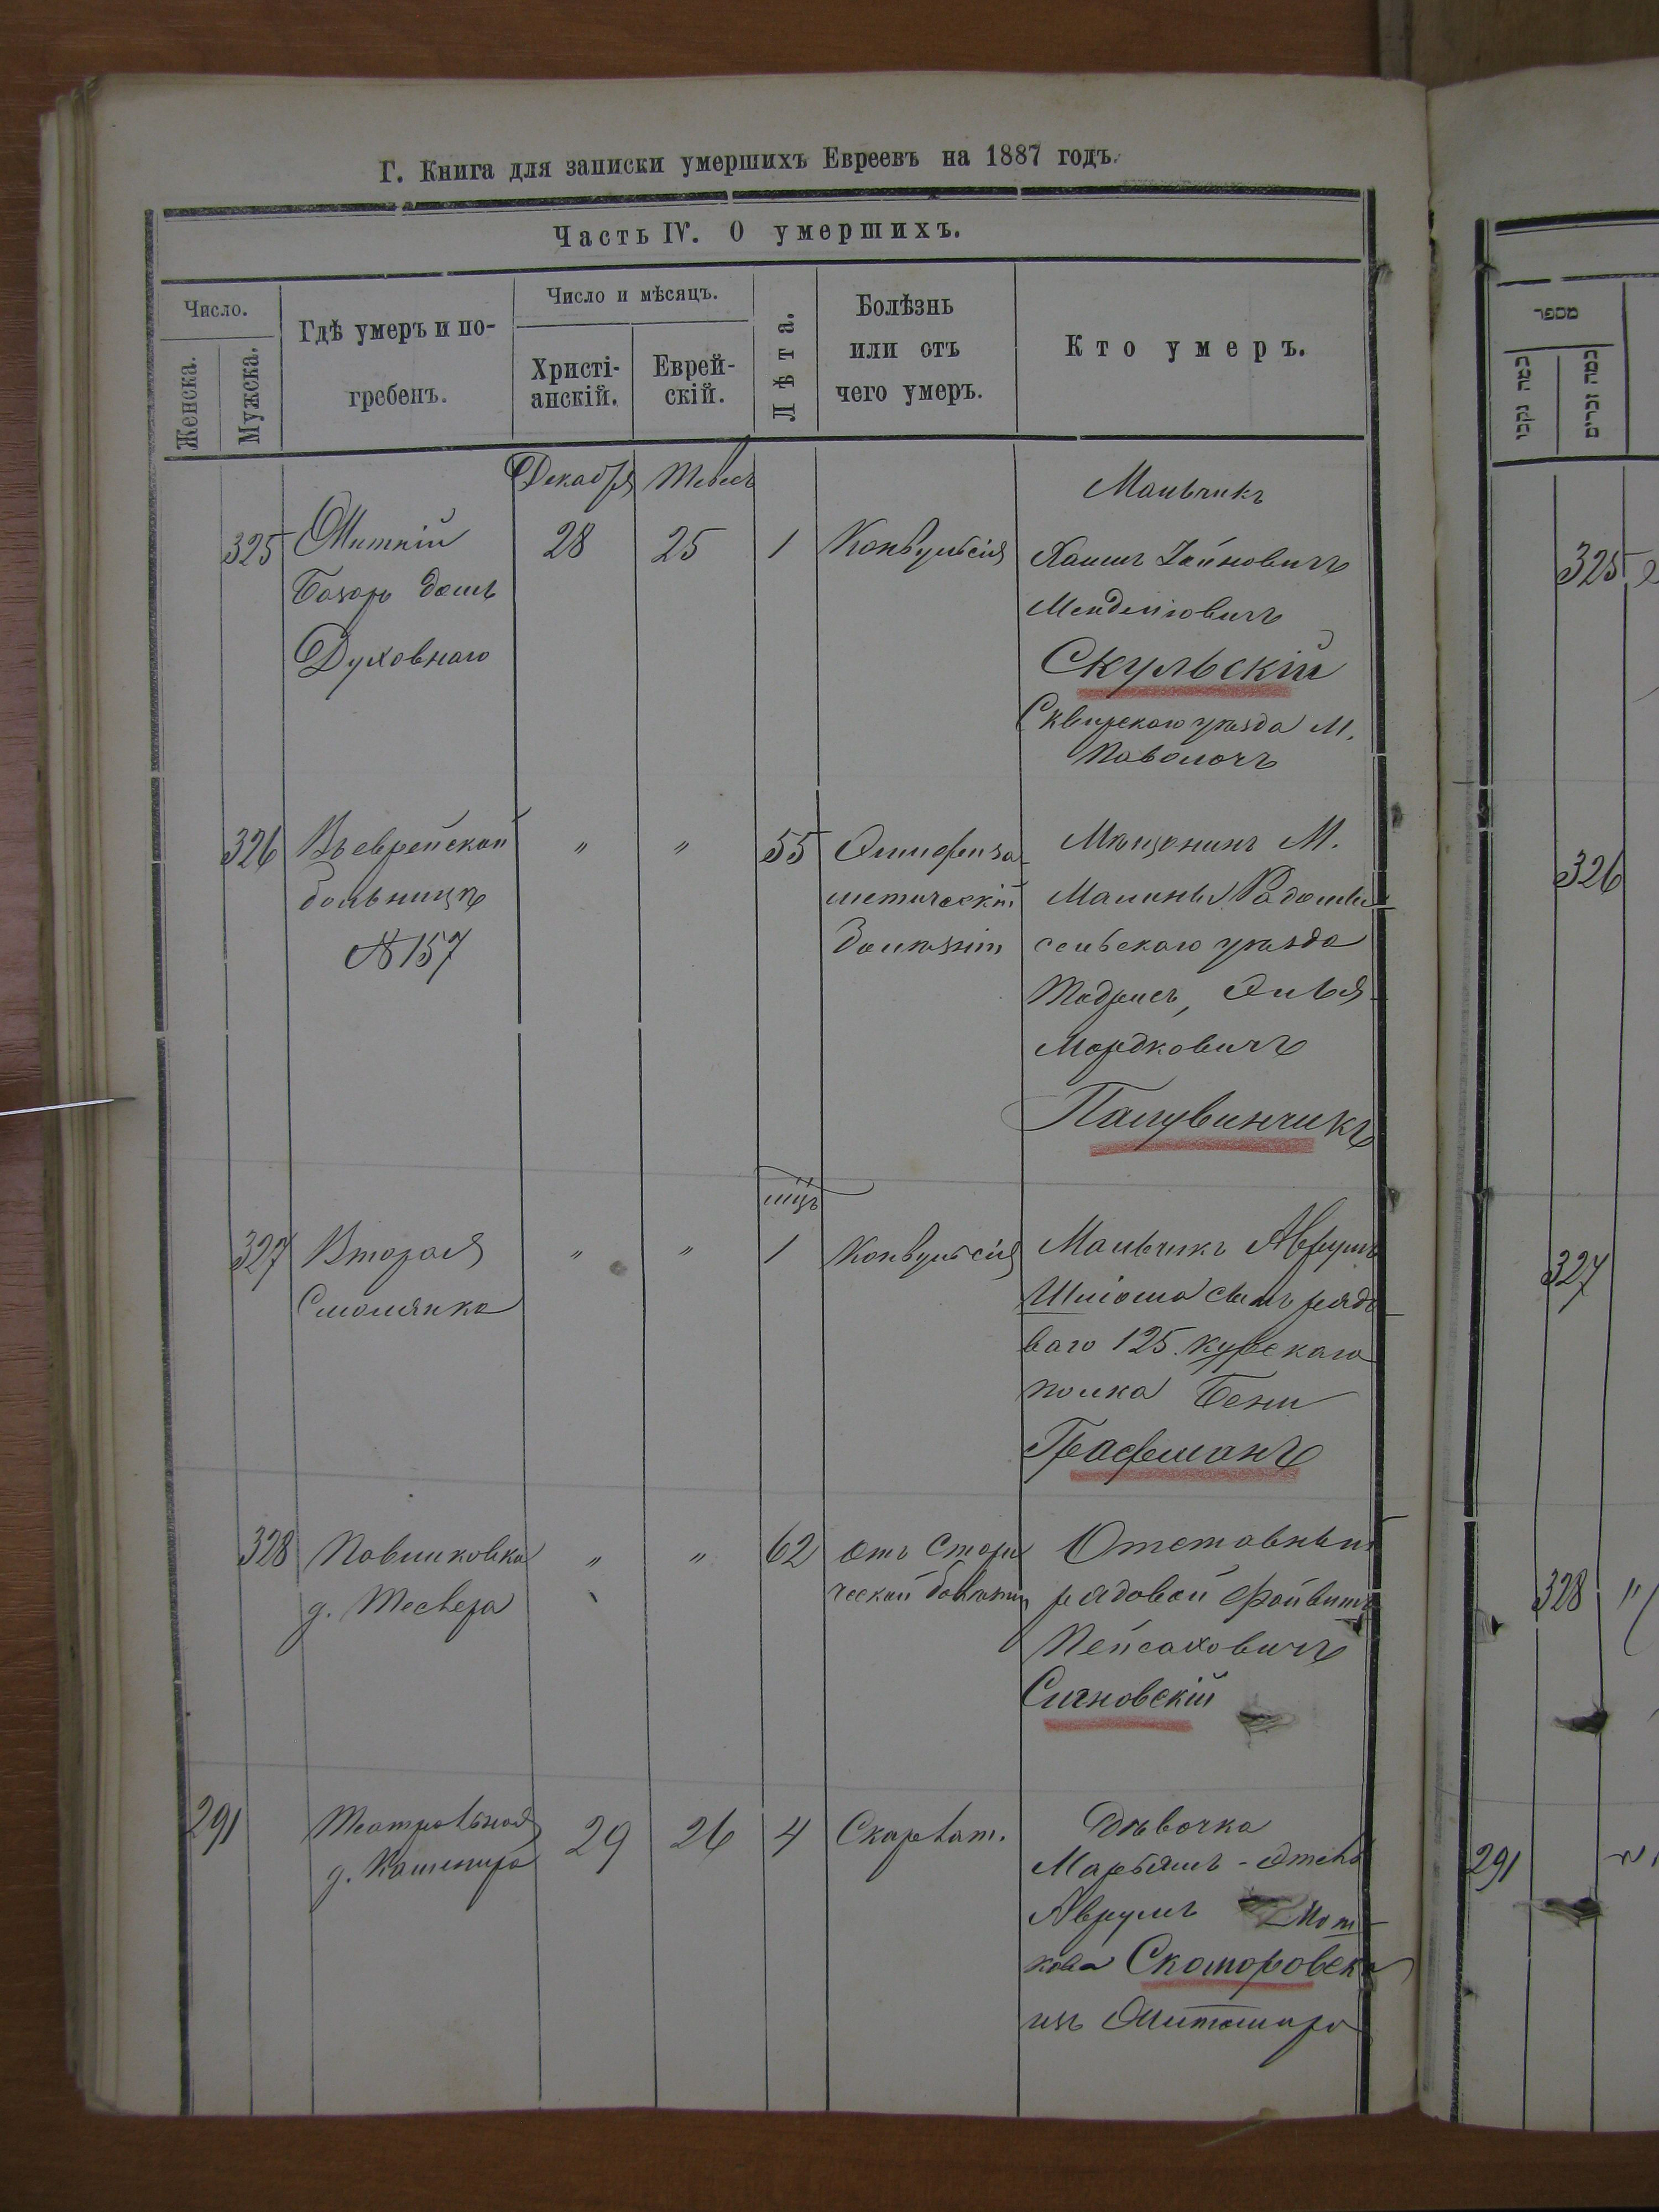 Г. Книга для записки умершихъ Евреевъ на 1887 годъ.
Часть IV. О умершихъ.
Число.
Женска.
Мужска.
Гдѣ умеръ и по-
гребенъ.
Число и мѣсяцъ.
Христі-
анскій.
Еврей-
скій.
Лѣта.
Болѣзнь
или отъ
чего умеръ.
Кто умеръ.
Декабря
Тевесъ
325
Житній
Базаръ домъ
Духовнаго
28
25
1
Конвульсія
Мальчикъ
Хаимъ
Менделіовичъ
Скульскій
Сквирскаго уѣзда М.
Паволочъ
326
Въ еврейской
больницѣ
№157
"
"
55
Мѣщанинъ М.
Малинъ Радомы-
сельскаго уѣзда
Тодрисъ, Эльія-
Мордковичъ
Палувинчикъ
327
Вторая
Смолянка
"
"
мцъ
1
Конвульсія
Мальчикъ Аврумъ
Шліома сынъ рядо-
ваго 125. курскаго
полка Бени
Графманъ
328
Павликовка
д. Тесвера
"
"
62
отъ Стари
ческой
Отставный
рядовой Файвишъ
Пейсаховичъ
Сигновскій
291
Театральная
д. Кашемира
29
26
4
Скарлат.
Дѣвочка
Марьямъ - отецъ
Аврумъ Мот-
кова Скоморовска
изъ Житомира
מספר
כמה נקבו
כמה זכרים
325
326
327
328
291